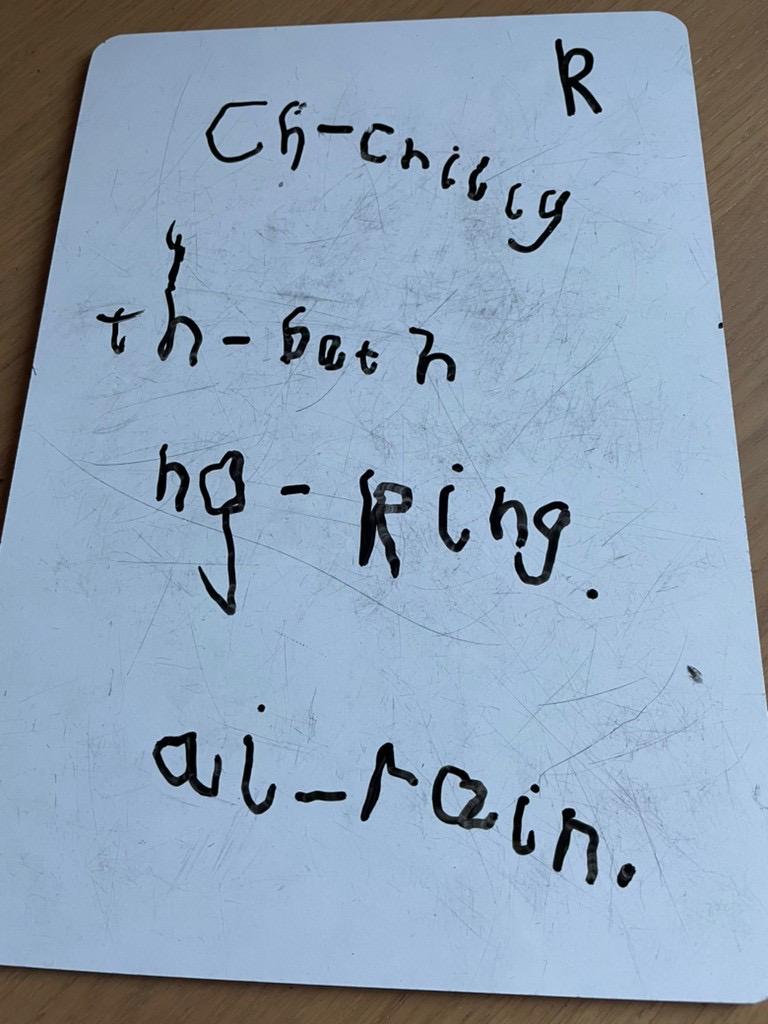 R
Ch-chilly
th-bath
ng-Ring.
ai-rain.